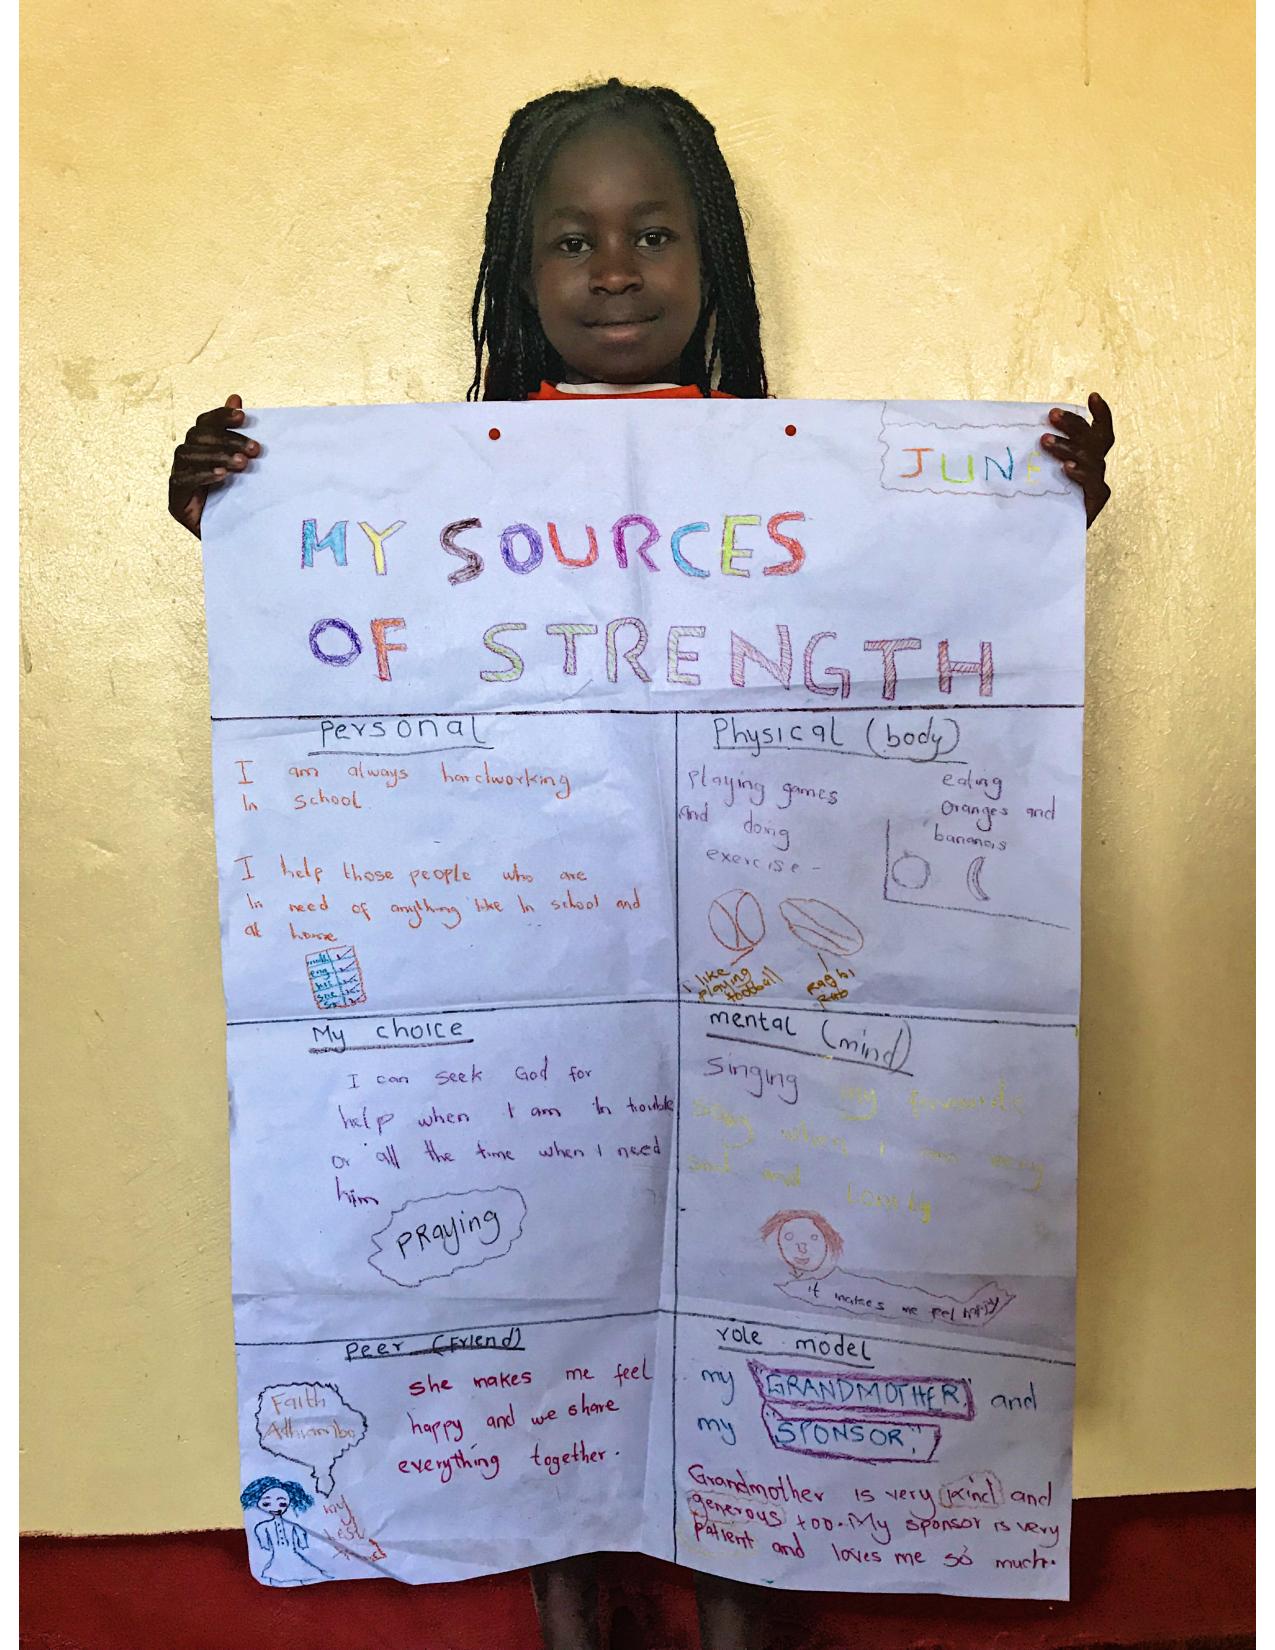 JUNE
MY SOURCES
OF STRENGTH
Personal
I am always hardworking
In school
I help those people who are
In need of anything like In school and
at home
math
eng
Physical (body)
playing games
and doing
exercise -
eating
oranges and
bananas
i like
playing
football
My choice
I can seek God for
help when I am In trouble
or all the time when I need
him
PRaying
mental (mind)
Singing my
song when I am very
sad and Lonely
it makes me feel happy
Peer (Friend)
Faith
Adhiambo
she makes me feel
happy and we share
everything together.
my
role model
my "GRANDMOTHER" and
my "SPONSOR".
Grandmother is very kind and
generous too. My sponsor is very
patient and loves me so much.